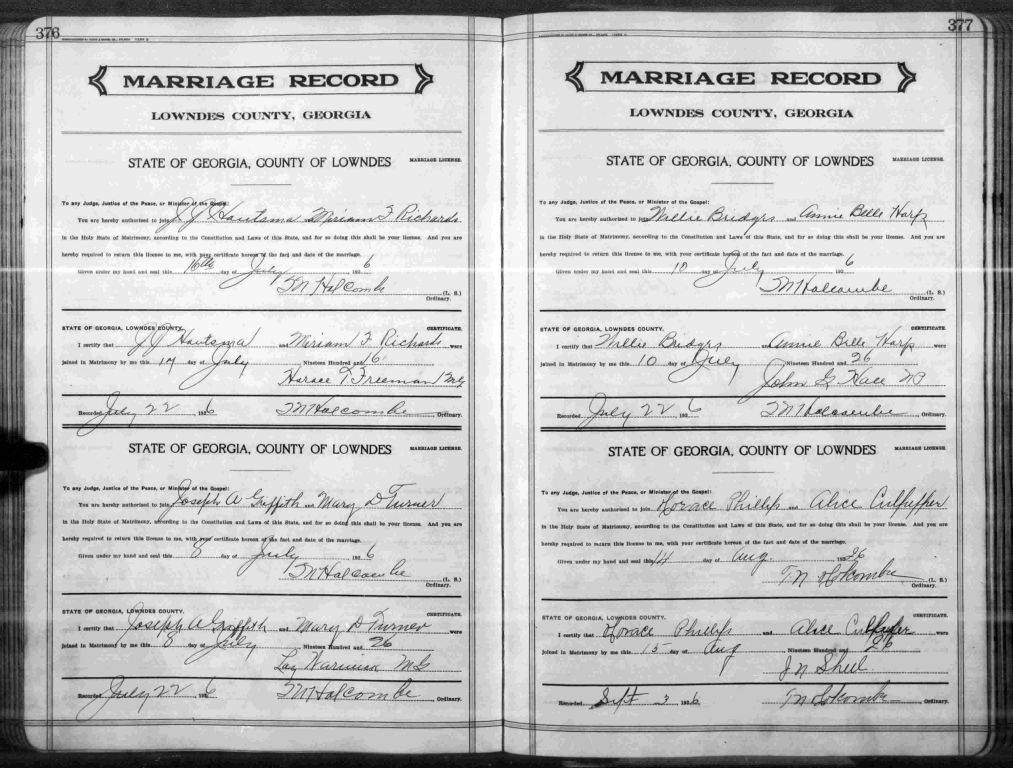 376
MARRIAGE RECORD
LOWNDES COUNTY, GEORGIA
STATE OF GEORGIA, COUNTY OF LOWNDES MARRIAGE LICENSE.
To any Judge, Justice of the Peace, or Minister of the Gospel:
You are hereby authorized to join J J Houtsma and Miriam F Richards
in the Holy State of Matrimony, according to the Constitution and Laws of this State, and for so doing this shall be your license. And you are
hereby required to return this license to me, with your certificate hereon of the fact and date of the marriage.
Given under my hand and seal this 16th day of July 1926
T N Holcombe (L. S.)
Ordinary.
STATE OF GEORGIA, LOWNDES COUNTY. CERTIFICATE.
I certify that J J Houtsma and Miriam F Richards were
joined in Matrimony by me this 17 day of July Nineteen Hundred and
Horace T Freeman
Recorded July 22 1926 T N Holcombe Ordinary.
STATE OF GEORGIA, COUNTY OF LOWNDES MARRIAGE LICENSE.
To any Judge, Justice of the Peace, or Minister of the Gospel:
You are hereby authorized to join Joseph A Griffith and Mary D Turner
in the Holy State of Matrimony, according to the Constitution and Laws of this State, and for so doing this shall be your license. And you are
hereby required to return this license to me, with your certificate hereon of the fact and date of the marriage.
Given under my hand and seal this 8 day of July 1926
T N Holcombe (L. S.)
Ordinary.
STATE OF GEORGIA, LOWNDES COUNTY. CERTIFICATE.
I certify that Joseph A Griffith and Mary D Turner were
joined in Matrimony by me this 8 day of July Nineteen Hundred and 26
M G
Recorded July 22 1926 T N Holcombe Ordinary.
377
MARRIAGE RECORD
LOWNDES COUNTY, GEORGIA
STATE OF GEORGIA, COUNTY OF LOWNDES MARRIAGE LICENSE.
To any Judge, Justice of the Peace, or Minister of the Gospel:
You are hereby authorized to join Willie Bridgrs and Annie Belle Harp
in the Holy State of Matrimony, according to the Constitution and Laws of this State, and for so doing this shall be your license. And you are
hereby required to return this license to me, with your certificate hereon of the fact and date of the marriage.
Given under my hand and seal this 10 day of July 1926
T N Holcombe (L. S.)
Ordinary.
STATE OF GEORGIA, LOWNDES COUNTY. CERTIFICATE.
I certify that Willie Bridgrs and Annie Belle Harp were
joined in Matrimony by me this 10 day of July Nineteen Hundred and 26
John G
Recorded July 22 1926 T N Holcombe Ordinary.
STATE OF GEORGIA, COUNTY OF LOWNDES MARRIAGE LICENSE.
To any Judge, Justice of the Peace, or Minister of the Gospel:
You are hereby authorized to join Horace Phillips and Alice Culpepper
in the Holy State of Matrimony, according to the Constitution and Laws of this State, and for so doing this shall be your license. And you are
hereby required to return this license to me, with your certificate hereon of the fact and date of the marriage.
Given under my hand and seal this 14 day of Aug. 1926
T N Holcombe (L. S.)
Ordinary.
STATE OF GEORGIA, LOWNDES COUNTY. CERTIFICATE.
I certify that Horace Phillips and Alice Culpepper were
joined in Matrimony by me this 15 day of Aug Nineteen Hundred and 26
J N
Recorded Sept 3 1926 T N Holcombe Ordinary.